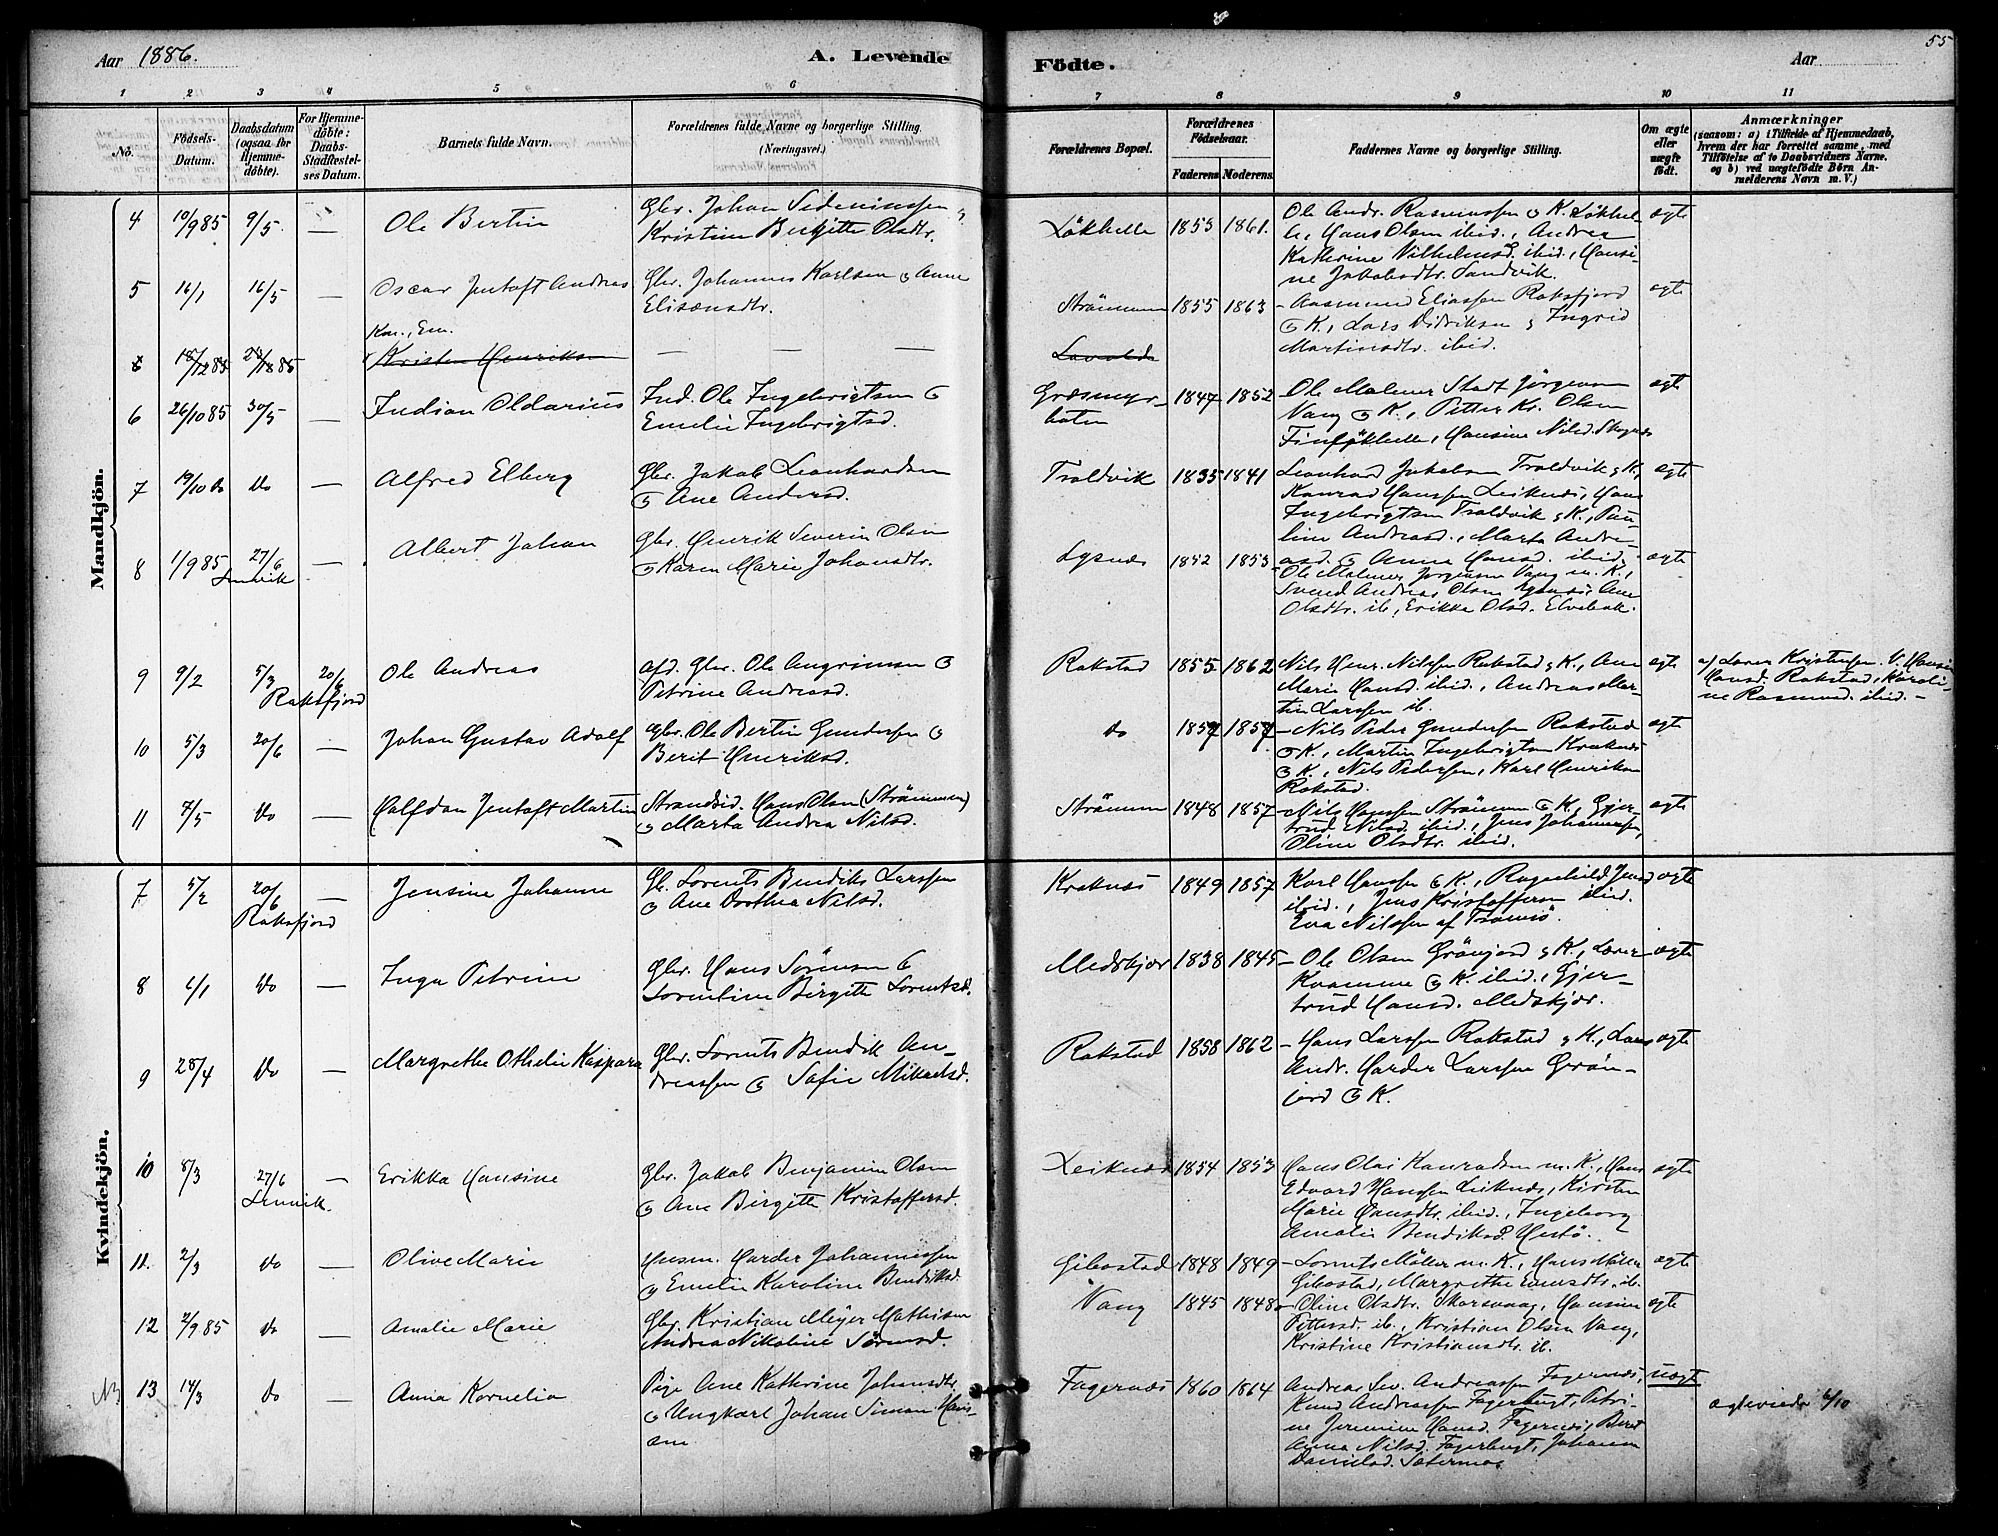 55
Aar 1886.
A. Levende
Födte.
Aar
1 2 3 4 5 6 7 8 9 10 11
No.
Födsels-Datum.
Daabsdatum (ogsaa for Hjemme-döbte).
For Hjemme-döbte: Daabs-Stadfæstel-ses Datum.
Barnets fulde Navn.
Forældrenes fulde Navne og borgerlige Stilling.
(Næringsvei.)
Forældrenes Bopæl.
Forældrenes Födselsaar.
Faderens Moderens
Faddernes Navne og borgerlige Stilling.
Om ægte eller uægte födt.
Anmærkninger
(saasom: a) i Tilfælde af Hjemmedaab,
hvem der har forrettet samme, med
Tilföielse af to Daabsvidners Navne.
og b) ved uægtefödte Börn An-
melderens Navn m. V.)
Mandkjön.
4 10/9 85 9/5 — Ole Bertin
Gbr. Johan
Kristine Birgitte Olsdtr.
Løkhelle 1853 1861.
Ole Andr. Rasmussen & K. Løkhel-
le, Hans Olsen ibid., Andrea
Kathrine Vilhelmsd. ibid., Hansi-
ne Jakobsdtr. Sandvik.
ægte
5 16/1 16/5 — Oscar Jentoft Andreas
Gbr. Johannes Karlsen & Anne
Elisæusdtr.
Strömmen 1855 1863
— Aasmund Eliassen Raksfjord
& K., Lars Didriksen & Ingrid
Martinsdtr. ibid.
ægte
Kar., Em.
Kristen Henriksen — — —
6 26/10 85 30/5 — Indian Oldarius
Ind. Ole Ingebrigtsen &
Emelie Ingebrigtsd.
Græsmyr-
botn 1847 1852
Ole Malener Stadt Jörgensen
Vang & K., Petter Kr. Olsen
Finfjökhelle, Hansine Nilsd. Skognes
ægte
7 19/10 do do — Alfred Elberg
Gbr. Jakob Leonhardsen
& Ane Andersd.
Troldvik 1835 1841
Leonhard Jakobsen Troldvik & K.,
Konrad Hanssen Leiknes, Hans
Ingebrigtsen Troldvik & K., Pau-
line Andreasd., Marta Andre-
asd. & Anna Hansd. ibid.
ægte
8 1/9 85 27/6 Lenvik — Albert Johan
Gbr. Henrik Severin Olsen
& Karen Marie Johansdtr.
Lysnes 1852 1853
— Ole Malener Jörgensen Vang m. K.,
Svend Andreas Olsen Lysnes, Ane
Olsdtr. ib., Erikka Olsd. Elvebak.
ægte
9 9/2 5/3 20/6 Raksfjord Ole Andreas
Afd. Gbr. Ole Angrimsen &
Petrine Andreasd.
Rakstad 1855 1862
Nils Henr. Nilssen Rakstad & K., Ane
Marie Hansd. ibid., Andreas Mar-
tin Larssen ib.
ægte
a) Loren Kristensen V. Hansine
Hansd. Rakstad, Karoli-
ne Rasmusd. ibid. —
10 5/3 20/6 — Johan Gustav Adolf
Gbr. Ole Bertin Gundersen &
Berit Henriksd.
do 1857 1857
— Nils Peder Gundersen Rakstad
& K., Martin Ingebrigtsen Kraknes
& K., Nils Pedersen, Karl Henriksen
Rakstad.
ægte
11 7/5 do — Halfdan Jentoft Martin
Strandsid. Hans Olsen (Strömmen)
& Marta Andrea Nilsd.
Strömmen 1848 1857
— Nils Hanssen Strömmen & K., Gjer-
trud Nilsd. ibid., Jens Johannessen,
Oline Olsdtr. ibid.
ægte
Kvindekjön.
7 5/2 20/6 Raksfjord — Jensine Johanne
Gb. Lorents Bendiks Larssen
& Ane Dorthea Nilsd.
Kraknes 1849 1857
Karl Hanssen & K., Ragnhild Jensd.
ibid., Jens Kristoffersen ibid.
Eva Nilssen af Tromsö.
ægte
8 6/1 do — Inga Petrine
Gbr. Hans Sörensen &
Lorentine Birgitte Lorentsd.
Medskjær 1838 1845
— Ole Olsen Grönjord & K., Lærer
Kvamme & K. ibid., Gjer-
trud Hansd. Medskjær.
ægte
9 28/4 do — Margrethe Othelie Kaspara
Gbr. Lorents Bendik An-
dreassen & Sofie Mikaelsd.
Rakstad 1858 1862
— Hans Larssen Rakstad & K., Lars
Andr. Harder Larssen Grön-
jord & K.
ægte
10 8/3 27/6 Lenvik. — Erikka Hansine
Gbr. Jakob Benjamin Olsen
& Ane Birgitte Kristoffersd.
Leiknes 1854 1853
Hans Olai Konradsen m. K., Hans
Edvard Hanssen Leiknes, Kirsten
Marie Hansdtr. ibid., Ingeborg
Amalie Bendiksd. Hestö.
ægte
11. 2/3 do — Olive Marie
Husm. Harder Johannessen
& Emelie Karoline Bendiksd.
Gibostad 1848 1849
— Lorents Möller m. K., Hans Möller
Gibostad, Margrethe Evensdtr. ib.
ægte
12 2/9 85 do — Amalie Marie
Gbr. Kristian Meyer Mathisen
Andrea Nikoline Sörensd.
Vang 1845 1848
— Oline Olsdtr. Skorsvaag, Hansine
Pettersd. ib., Kristian Olsen Vang,
Kristine Kristiansdtr. ib.
ægte
13 14/3 do — Anna Kornelia
Pige Ane Kathrine Johansdtr.
& Ungkarl Johan Simon Hans-
sen
Fagernes 1860 1864
Andreas Sev. Andreassen Fagernes,
Knud Andreassen Fagerbugt, Petri-
ne Jeremine Hansd. Fagernes, Beret
Anna Nilsd. Fagerbugt, Johanna
Danielsd. Sætermo.
uægt
Ægteviede 6/10